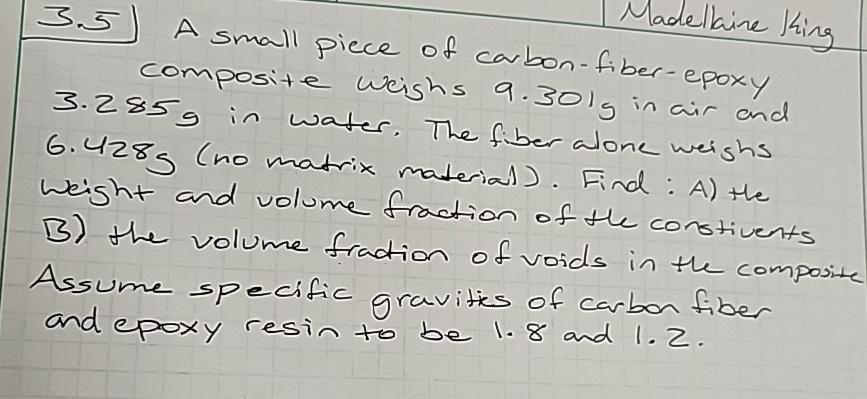 Madellaine King
3.5) A small piece of carbon-fiber-epoxy
composite weighs 9.301g in air and
3.285g in water. The fiber alone weighs
6.428g (no matrix material). Find: A) the
weight and volume fraction of the constivents
B) the volume fraction of voids in the composite
Assume specific gravities of carbon fiber
and epoxy resin to be 1.8 and 1.2.